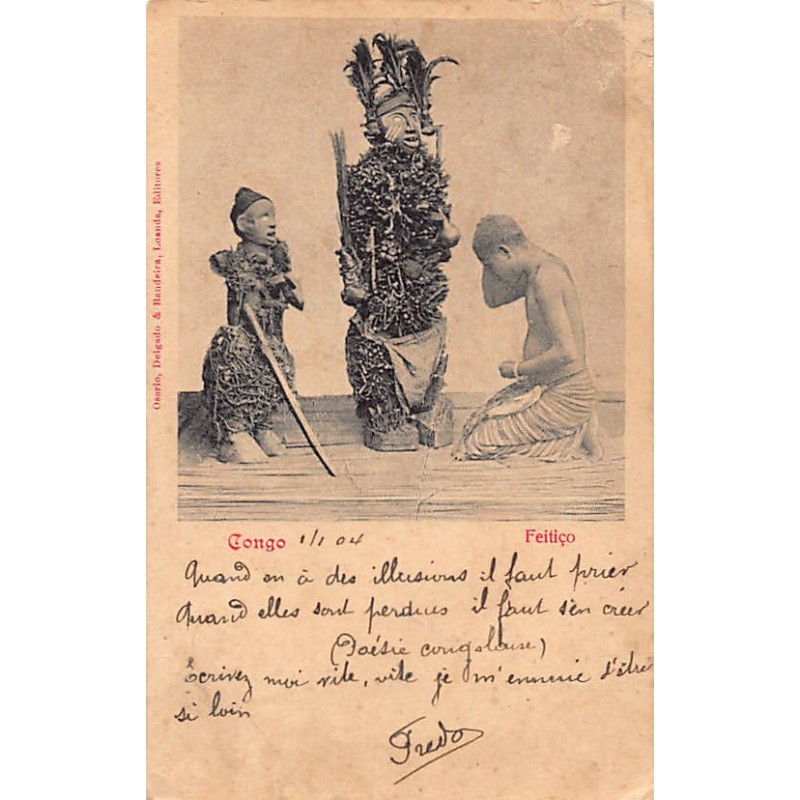 Osorio, Delgado & Bandeira, Loanda, Editores
Congo 1/1 04 Feitiço
Quand on à des illusions il faut prier
Quand elles sont perdues il faut s'en créer
(Poésie congolaise)
Ecrivez moi vite, vite je m'ennuie d'être
si loin
Fredo